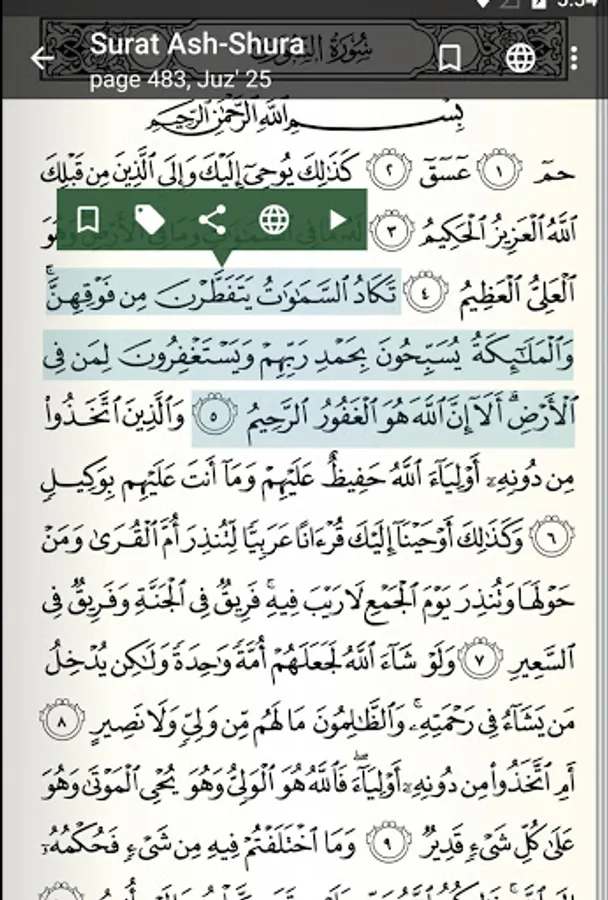 5:54
Surat Ash-Shura
page 483, Juz' 25
سُورَةُ الشُّورَىٰ
بِسْمِ اللَّهِ الرَّحْمَٰنِ الرَّحِيمِ
حمٓ ١ عٓسٓقٓ ٢ كَذَٰلِكَ يُوحِىٓ إِلَيْكَ وَإِلَى ٱلَّذِينَ مِن قَبْلِكَ
ٱللَّهُ ٱلْعَزِيزُ ٱلْحَكِيمُ ٣ لَهُۥ مَا فِى ٱلسَّمَٰوَٰتِ وَمَا فِى ٱلْأَرْضِ وَهُوَ
ٱلْعَلِىُّ ٱلْعَظِيمُ ٤ تَكَادُ ٱلسَّمَٰوَٰتُ يَتَفَطَّرْنَ مِن فَوْقِهِنَّ ۚ
وَٱلْمَلَٰٓئِكَةُ يُسَبِّحُونَ بِحَمْدِ رَبِّهِمْ وَيَسْتَغْفِرُونَ لِمَن فِى
ٱلْأَرْضِ ۗ أَلَآ إِنَّ ٱللَّهَ هُوَ ٱلْغَفُورُ ٱلرَّحِيمُ ٥ وَٱلَّذِينَ ٱتَّخَذُوا۟
مِن دُونِهِۦٓ أَوْلِيَآءَ ٱللَّهُ حَفِيظٌ عَلَيْهِمْ وَمَآ أَنتَ عَلَيْهِم بِوَكِيلٍ
٦ وَكَذَٰلِكَ أَوْحَيْنَآ إِلَيْكَ قُرْءَانًا عَرَبِيًّا لِّتُنذِرَ أُمَّ ٱلْقُرَىٰ وَمَنْ
حَوْلَهَا وَتُنذِرَ يَوْمَ ٱلْجَمْعِ لَا رَيْبَ فِيهِ ۚ فَرِيقٌ فِى ٱلْجَنَّةِ وَفَرِيقٌ فِى
ٱلسَّعِيرِ ٧ وَلَوْ شَآءَ ٱللَّهُ لَجَعَلَهُمْ أُمَّةً وَٰحِدَةً وَلَٰكِن يُدْخِلُ
مَن يَشَآءُ فِى رَحْمَتِهِۦ ۚ وَٱلظَّٰلِمُونَ مَا لَهُم مِّن وَلِىٍّ وَلَا نَصِيرٍ ٨
أَمِ ٱتَّخَذُوا۟ مِن دُونِهِۦٓ أَوْلِيَآءَ ۖ فَٱللَّهُ هُوَ ٱلْوَلِىُّ وَهُوَ يُحْىِ ٱلْمَوْتَىٰ وَهُوَ
عَلَىٰ كُلِّ شَىْءٍ قَدِيرٌ ٩ وَمَا ٱخْتَلَفْتُمْ فِيهِ مِن شَىْءٍ فَحُكْمُهُۥٓ